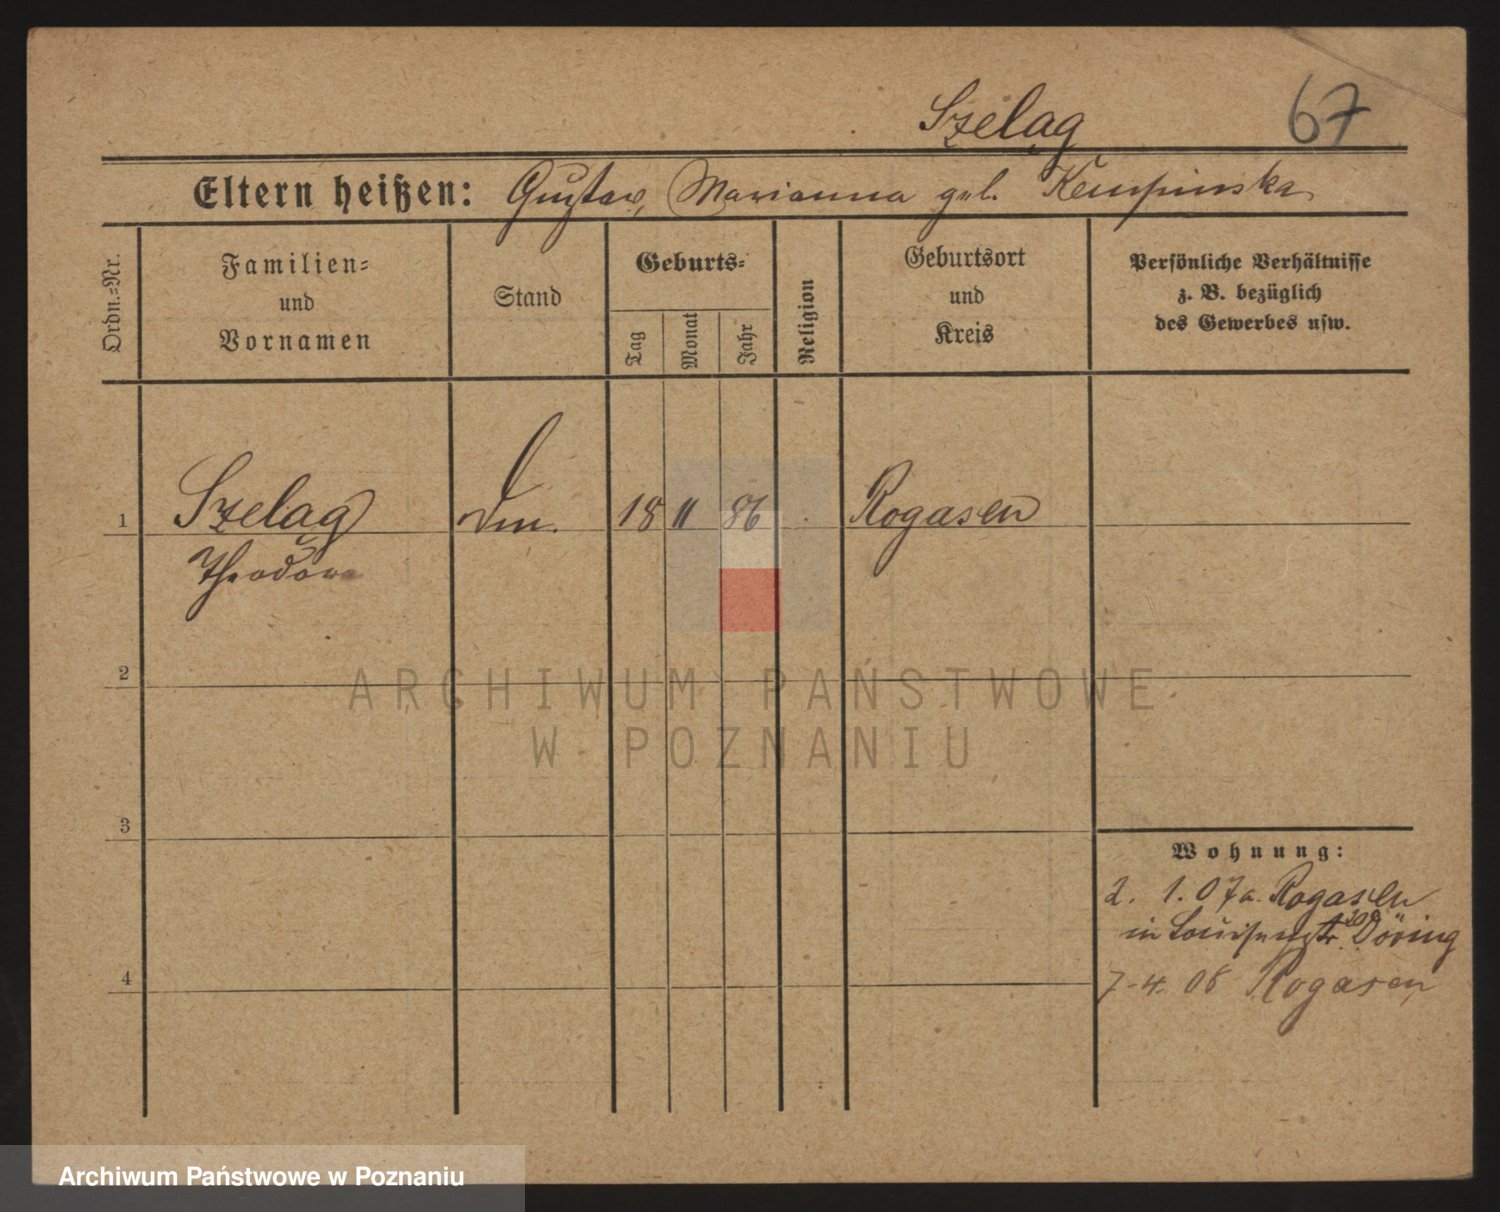 Szeląg 67
Eltern heißen: Gustav, Marianna geb. Kempinska
Ordn.=Nr.
Familien=
und
Vornamen
Stand
Geburts=
Tag
Monat
Jahr
Religion
Geburtsort
und
Kreis
Persönliche Verhältnisse
z. B. bezüglich
des Gewerbes usw.
1 Szeląg 18 11 86 Rogasen
Theodora
2
ARCHIWUM PAŃSTWOWE
W POZNANIU
3
Wohnung:
2. 1. 07 a. Rogasen
in Louisenstr. Döring
4
7-4. 08 Rogasen
Archiwum Państwowe w Poznaniu